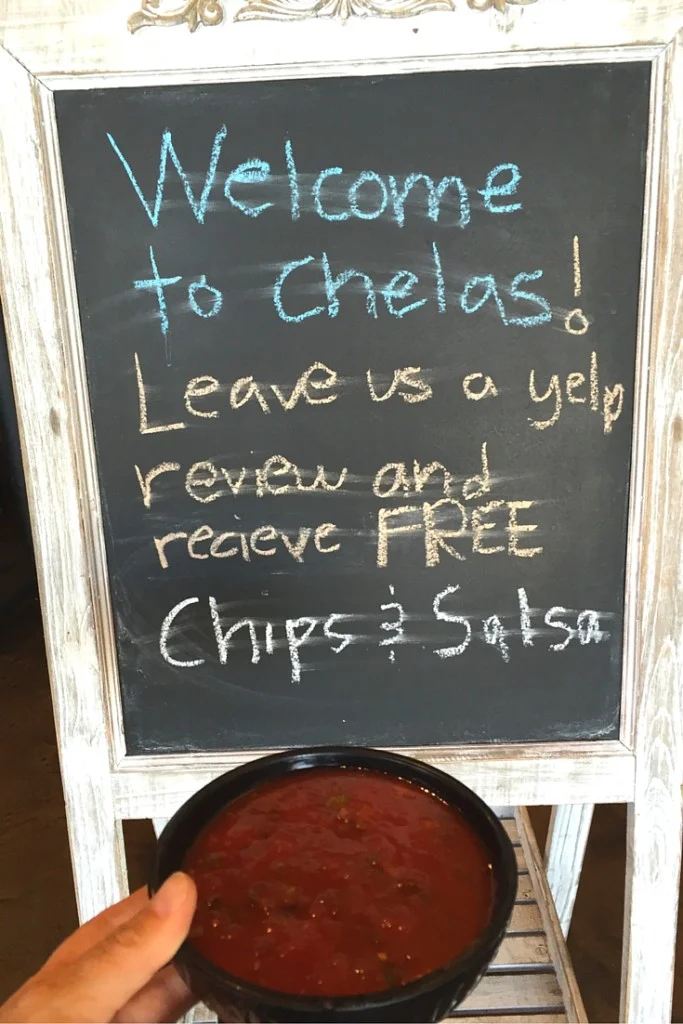 Welcome
to Chelas!
Leave us a yelp
review and
recieve FREE
Chips & Salsa